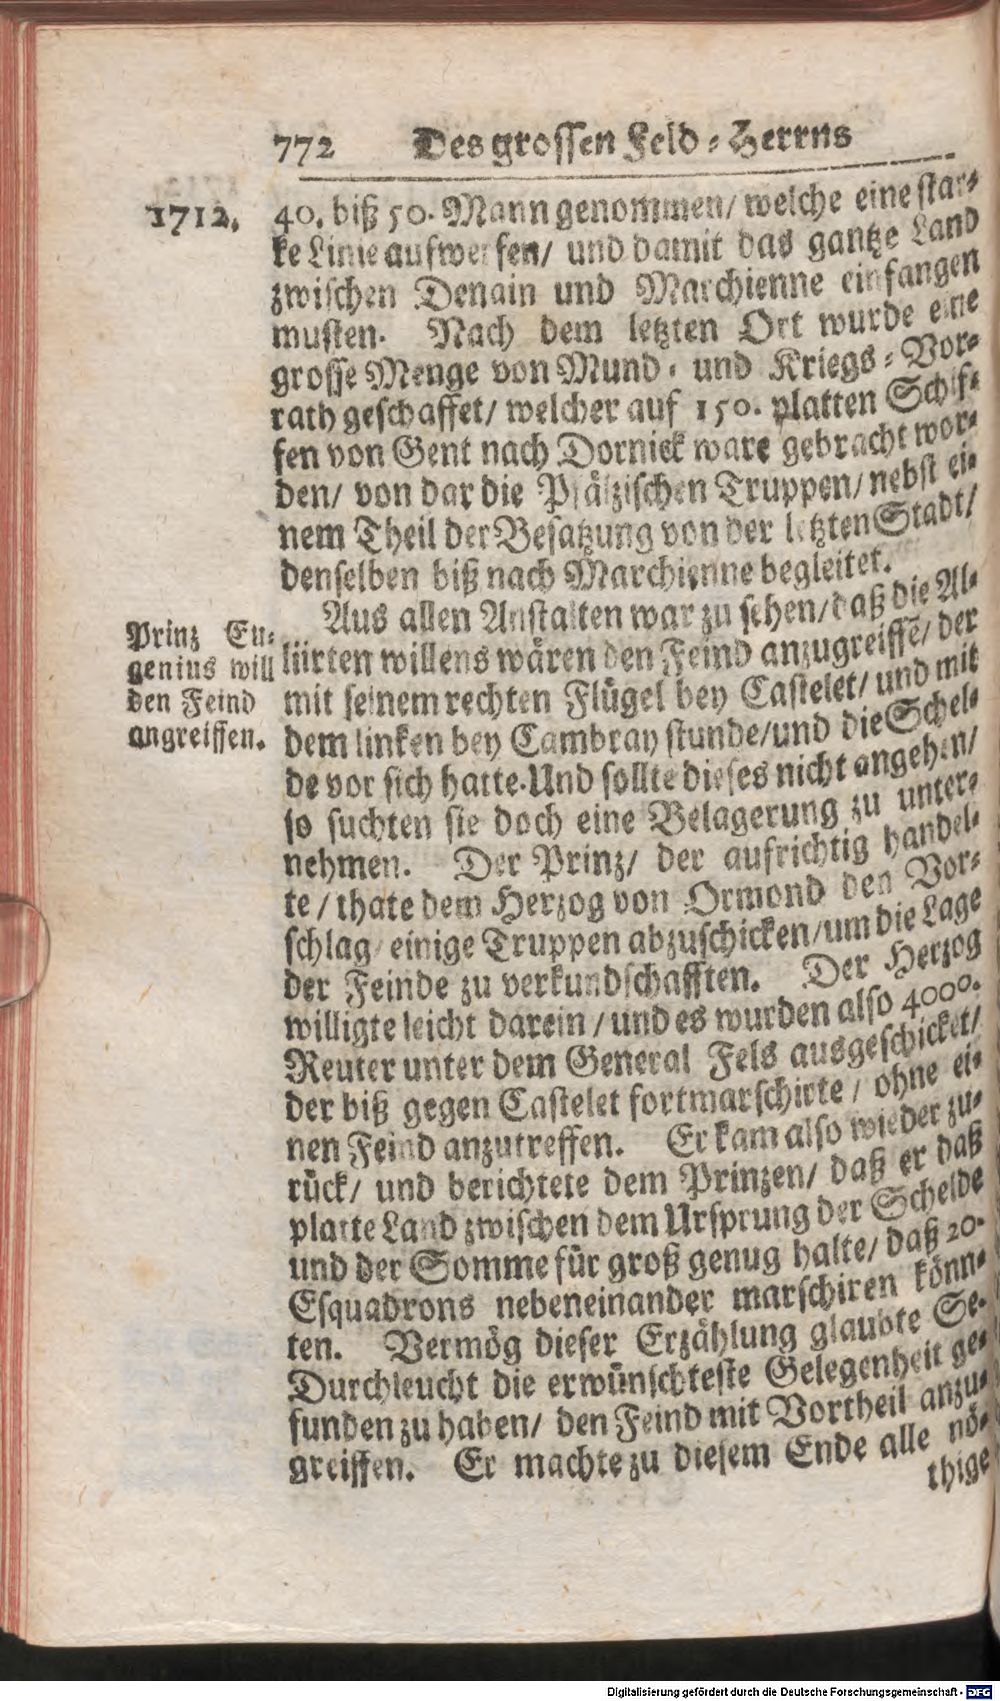 772 Des grossen Feld-Herrns
1712.
40. biß 50. Mann genommen/ welche eine star-
ke Linie aufwerfen/ und damit das gantze Land
zwischen Denain und Marchienne einfangen
musten. Nach dem letzten Ort wurde eine
grosse Menge von Mund- und Kriegs-Vor-
rath geschaffet/ welcher auf 150. platten Schif-
fen von Gent nach Dornick ware gebracht wor-
den/ von dar die Pfälzischen Truppen/ nebst ei-
nem Theil der Besatzung von der letzten Stadt/
denselben biß nach Marchienne begleitet.
Prinz Eu-
genius will
den Feind
angreiffen.
Aus allen Anstalten war zu sehen/ daß die Al-
liirten willens wären den Feind anzugreiffe/ der
mit seinem rechten Flügel bey Castelet/ und mit
dem linken bey Cambray stunde/ und die Schel-
de vor sich hatte. Und sollte dieses nicht angehen/
so suchten sie doch eine Belagerung zu unter-
nehmen. Der Prinz/ der aufrichtig handel-
te/ thate dem Herzog von Ormond den Vor-
schlag/ einige Truppen abzuschicken/ um die Lage
der Feinde zu verkundschafften. Der Herzog
willigte leicht darein/ und es wurden also 4000.
Reuter unter dem General Fels ausgeschicket/
der biß gegen Castelet fortmarschirte/ ohne ei-
nen Feind anzutreffen. Er kam also wieder zu-
rück/ und berichtete dem Prinzen/ daß er daß
platte Land zwischen dem Ursprung der Schelde
und der Somme für groß genug halte/ daß 20.
Esquadrons nebeneinander marschiren könn-
ten. Vermög dieser Erzählung glaubte Se.
Durchleucht die erwünschteste Gelegenheit ge-
funden zu haben/ den Feind mit Vortheil anzu-
greiffen. Er machte zu diesem Ende alle nö-
thige
Digitalisierung gefördert durch die Deutsche Forschungsgemeinschaft - DFG